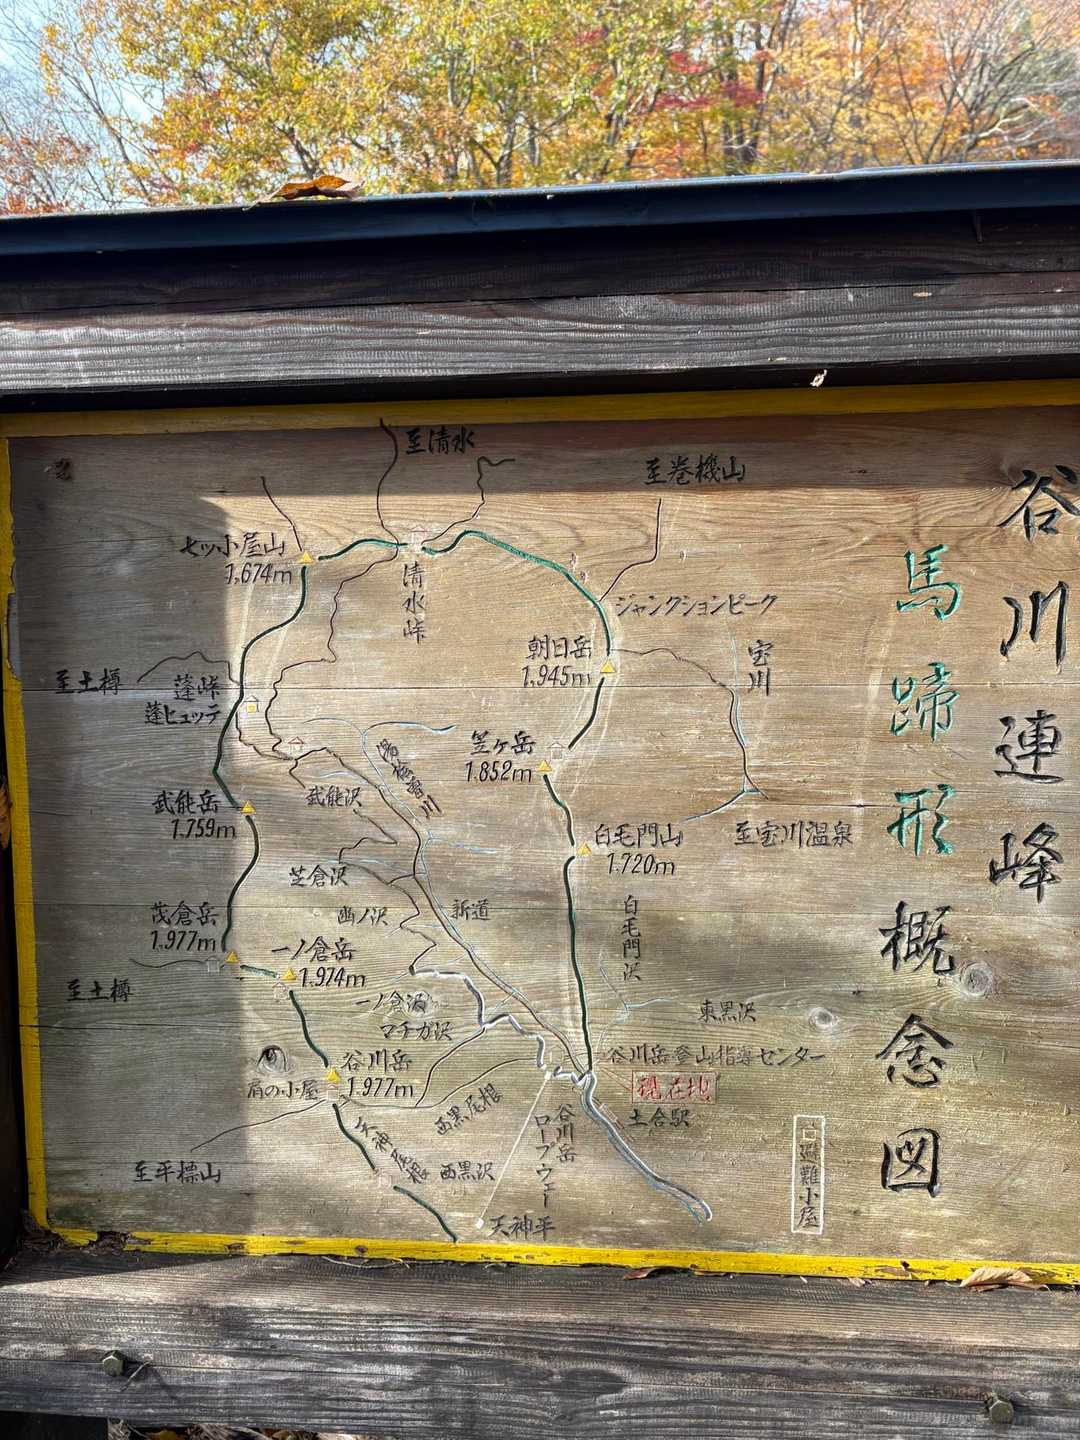 谷川連峰
馬蹄形概念図
至清水
至巻機山
七ッ小屋山
1,674m
清水峠
ジャンクションピーク
朝日岳
1,945m
宝川
至土樽
蓬峠
蓬ヒュッテ
笠ヶ岳
1,852m
湯桧曽川
武能沢
武能岳
1,759m
白毛門山
1,720m
至宝川温泉
芝倉沢
幽ノ沢
新道
白毛門沢
茂倉岳
1,977m
一ノ倉岳
1,974m
至土樽
一ノ倉沢
マチガ沢
東黒沢
谷川岳登山指導センター
現在地
土合駅
谷川岳
1,977m
肩の小屋
西黒尾根
天神尾根
西黒沢
谷川岳
ロープウェー
至平標山
天神平
避難小屋